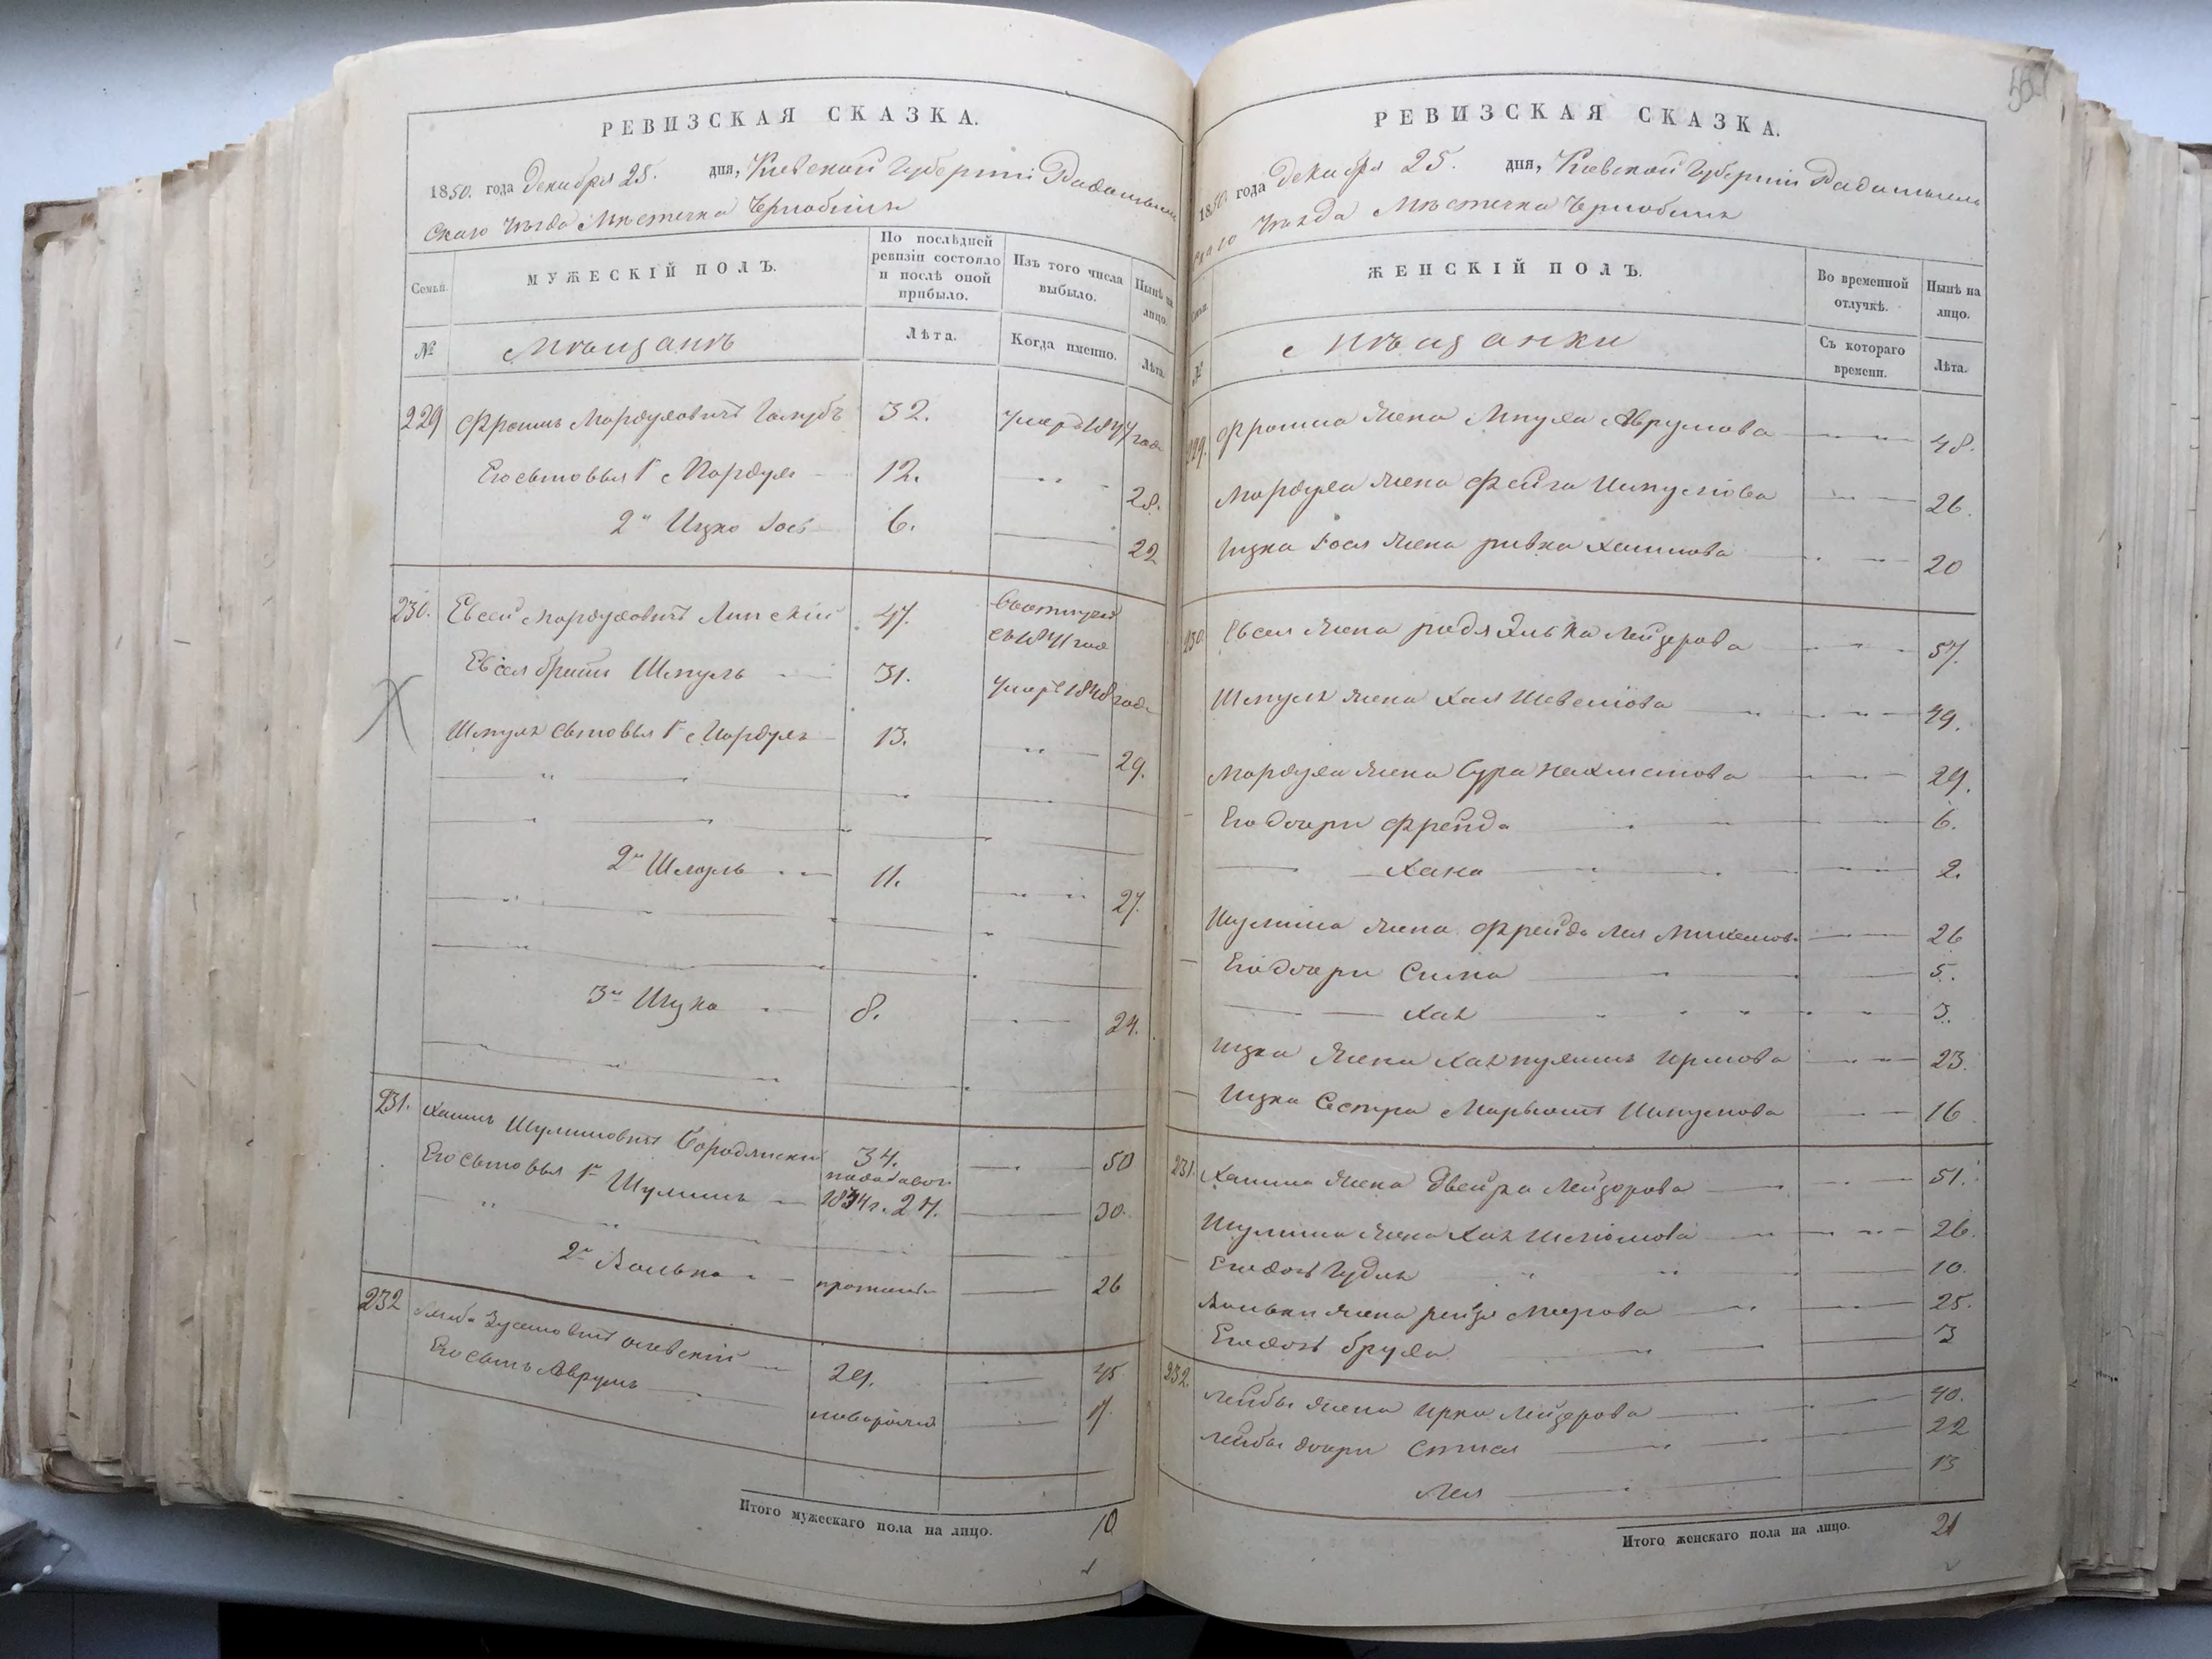 РЕВИЗСКАЯ СКАЗКА.
1850. года Декабря 25. дня, Кіевской Губерніи Радомысль
скаго Уѣзда Мѣстечка Чернобыля
Семьи.
МУЖЕСКІЙ ПОЛЪ.
По послѣдней ревизіи состояло и послѣ оной прибыло.
Изъ того числа выбыло.
Нынѣ на лицо.
№
Мѣщанъ
Лѣта.
Когда именно.
Лѣта.
229 Фроимъ Мордуховичъ Голубъ 32. умеръ 1844 года
Его сыновья 1й Мордухъ 12. 28.
2й Ицко Іосъ 6. 22
230. Евсей Мордуховичъ Липскій 47.
Евсея братъ Шмуль 31. умеръ 1848 года
Шмуля сыновья 1й Мордухъ 13. 29.
2й Шлоулъ 11. 27.
3й Ицко 8. 24.
231. Хаимъ Шулимовичъ Бородянскій 34. 50
Его сыновья 1й Шулимъ 1834 г. 27. 30.
2й 26
232 Лейба Зусмовичъ 29. 45
Его сынъ Аврумъ 17.
Итого мужескаго пола на лицо. 10
РЕВИЗСКАЯ СКАЗКА.
1850. года Декабря 25. дня, Кіевской Губерніи Радомысль
скаго Уѣзда Мѣстечка Чернобыля
Семьи.
ЖЕНСКІЙ ПОЛЪ.
Во временной отлучкѣ.
Нынѣ на лицо.
№
Мѣщанки
Съ котораго времени.
Лѣта.
229. Фроима жена Аврумова 48.
Мордуха жена Фейга Шмулiова 26.
Ицка Іося жена Ривка Хаимова 20
230 Евсея жена Лейзерова 57.
Шмуля жена Хая 49.
Мордуха жена Сура 29.
Его дочери Фрейда 6.
Хана 2.
Шулима жена Фрейда Лея 26
Его дочери Сима 5.
Хая 3.
Ицка жена Хая 23.
Ицка сестра Марьяшъ Шмулова 16
231. Хаима жена Двейра Лейзорова 51.
Шулима жена Хая Шліомова 26.
Его дочь Гудля 10.
жена Рейзя Меерова 25.
Его дочь Бруха 3
232. Лейбы жена Ирка Лейзерова 40.
Лейбы дочери 22
Лея 13
Итого женскаго пола на лицо. 21